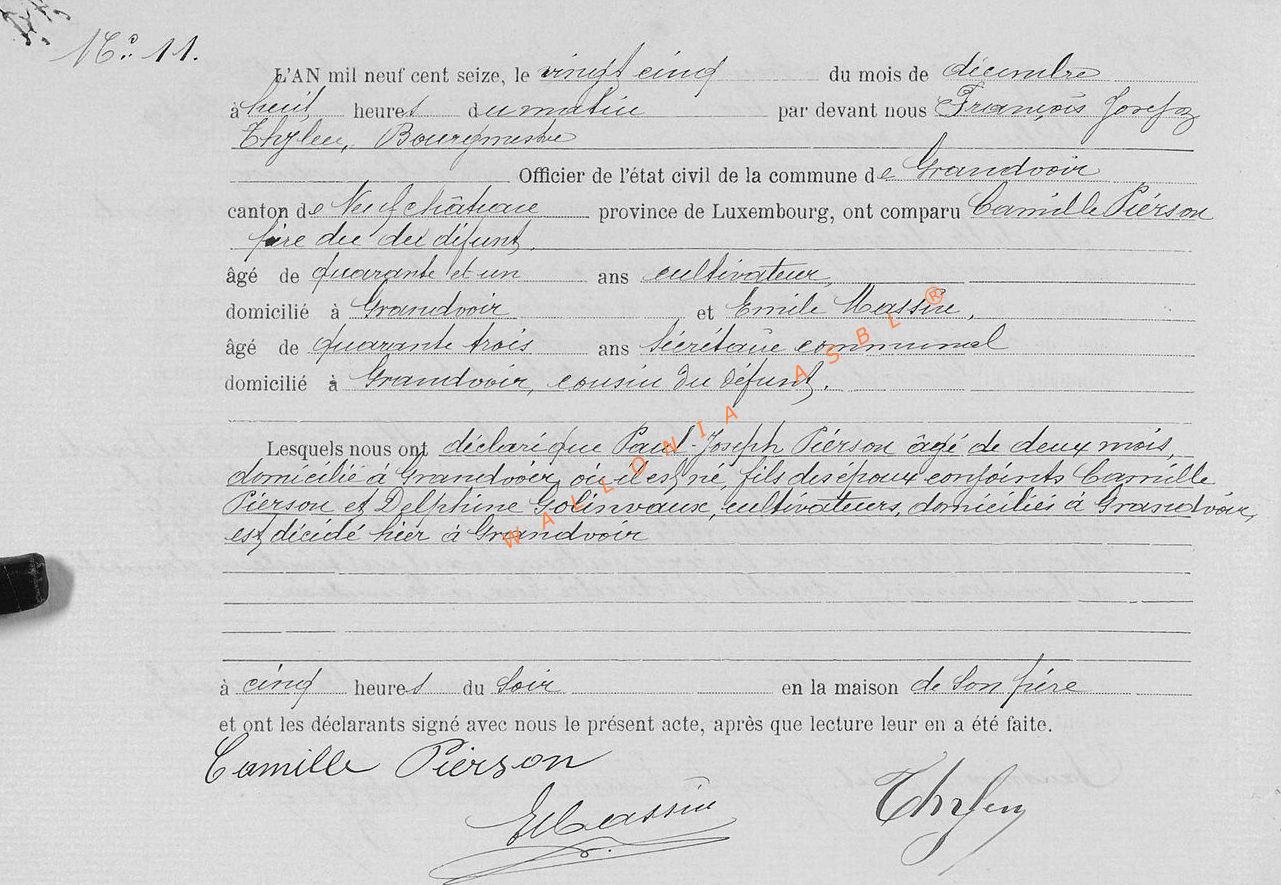 N° 11.
L'AN mil neuf cent seize, le vingt cinq du mois de décembre
à huit heures du matin par devant nous François Joseph
Thylen, Bourgmestre
Officier de l'état civil de la commune de Grandvoir
canton de Neufchâteau province de Luxembourg, ont comparu Camille Pierson
père du défunt,
âgé de quarante et un ans cultivateur,
domicilié à Grandvoir et Emile Massin,
âgé de quarante trois ans Secrétaire communal
domicilié à Grandvoir, cousin du défunt.
Lesquels nous ont déclaré que Paul-Joseph Pierson âgé de deux mois,
domicilié à Grandvoir, où il est né, fils des époux conjoints Camille
Pierson et Delphine Golinvaux, cultivateurs, domiciliés à Grandvoir,
est décédé hier à Grandvoir
à cinq heures du soir en la maison de son père
et ont les déclarants signé avec nous le présent acte, après que lecture leur en a été faite.
Camille Pierson
EMassin
Thylen
WALLONIA ASBL ®